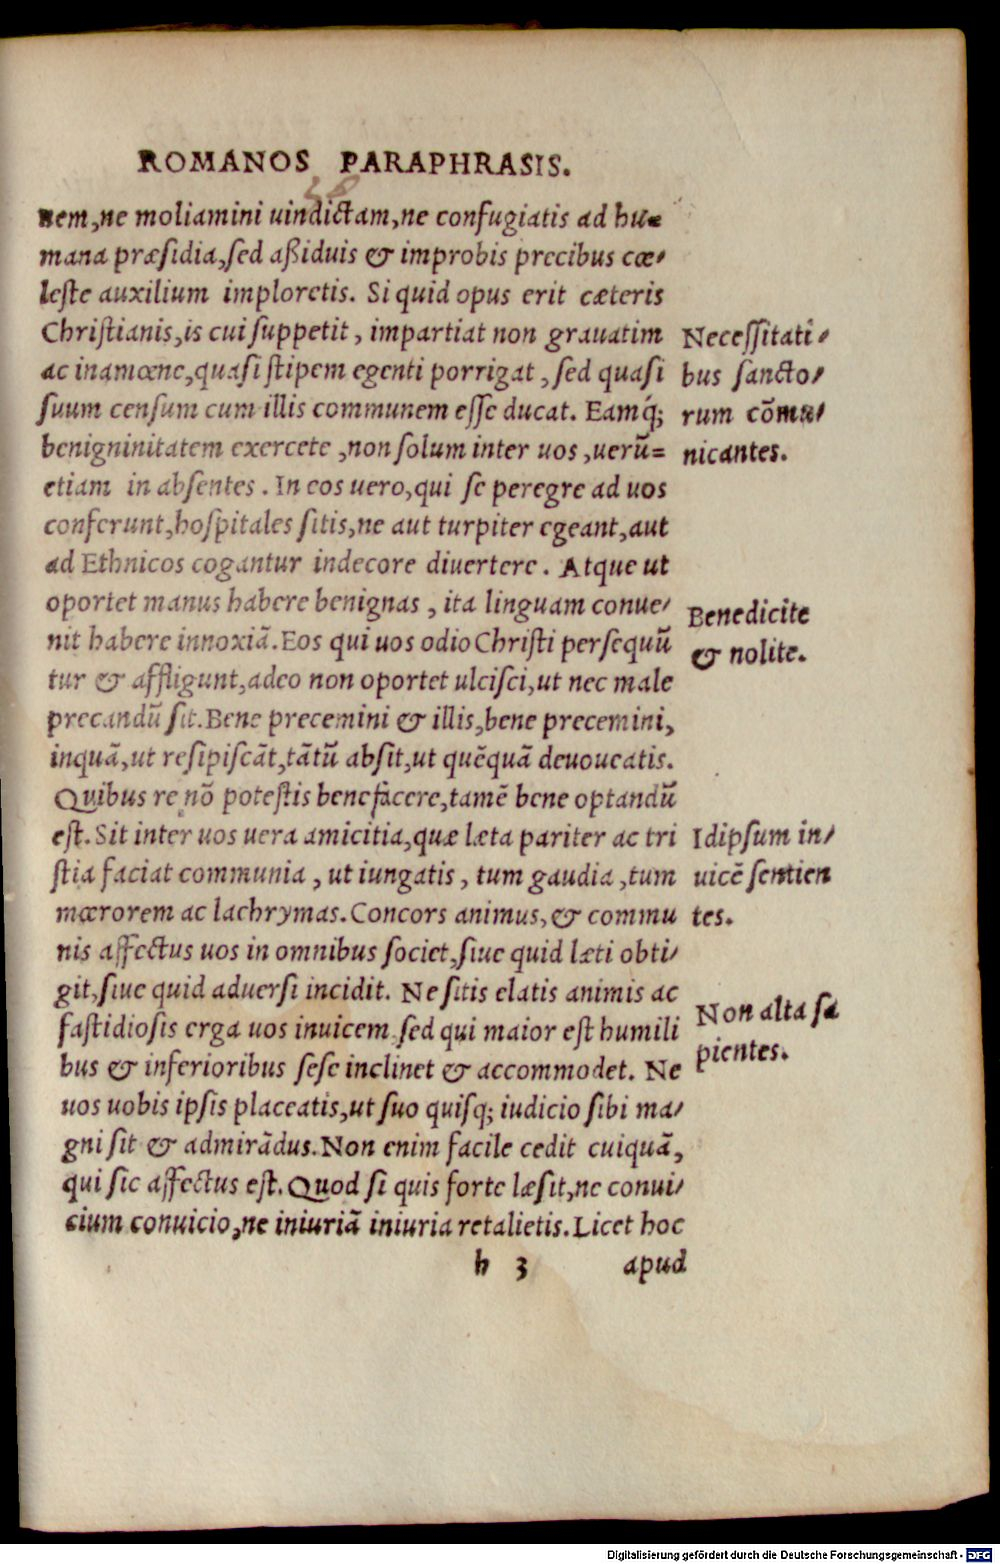 ROMANOS PARAPHRASIS.
nem,ne moliamini uindictam,ne confugiatis ad hu=
mana præsidia,sed aßiduis & improbis precibus cœ/
leste auxilium imploretis. Si quid opus erit cæteris
Christianis,is cui suppetit, impartiat non grauatim
ac inamœne,quasi stipem egenti porrigat, sed quasi
suum censum cum illis communem esse ducat. Eamq́;
benigninitatem exercete, non solum inter uos, uerũ=
etiam in absentes. In eos uero,qui se peregre ad uos
conferunt,hospitales sitis,ne aut turpiter egeant,aut
ad Ethnicos cogantur indecore diuertere. Atque ut
oportet manus habere benignas, ita linguam conue/
nit habere innoxiã. Eos qui uos odio Christi persequũ
tur & affligunt,adeo non oportet ulcisci,ut nec male
precandũ sit. Bene precemini & illis,bene precemini,
inquã,ut resipiscãt,tãtũ absit,ut quẽquã deuoueatis.
Quibus re nõ potestis benefacere,tamẽ bene optandũ
est. Sit inter uos uera amicitia,quæ læta pariter ac tri
stia faciat communia, ut iungatis, tum gaudia, tum
mœrorem ac lachrymas. Concors animus,& commu
nis affectus uos in omnibus societ,siue quid læti obti/
git,siue quid aduersi incidit. Ne sitis elatis animis ac
fastidiosis erga uos inuicem sed qui maior est humili
bus & inferioribus sese inclinet & accommodet. Ne
uos uobis ipsis placeatis,ut suo quisq; iudicio sibi ma/
gni sit & admirãdus. Non enim facile cedit cuiquã,
qui sic affectus est. Quod si quis forte læsit,ne conui/
cium conuicio,ne iniuriã iniuria retalietis. Licet hoc
h 3 apud
Necessitati/
bus sancto/
rum cõmu/
nicantes.
Benedicite
& nolite.
Idipsum in/
uicẽ sentien
tes.
Non alta sa
pientes.
Digitalisierung gefördert durch die Deutsche Forschungsgemeinschaft - DFG